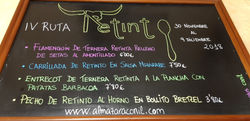 IV RUTA
Retint
30 NOVIEMBRE
AL
9 DICIEMBRE
2018
FLAMENQUÍN DE TERNERA RETINTA RELLENO
DE SETAS AL AMONTILLADO 6'90
CARRILLADA DE RETINTO EN SALSA
ENTRECOT DE TERNERA RETINTA A LA PLANCHA CON
PATATAS BARBACOA 7'90
PECHO DE RETINTO AL HORNO EN BOLLITO BRETZEL 3'90€
www.almazaraconil.com